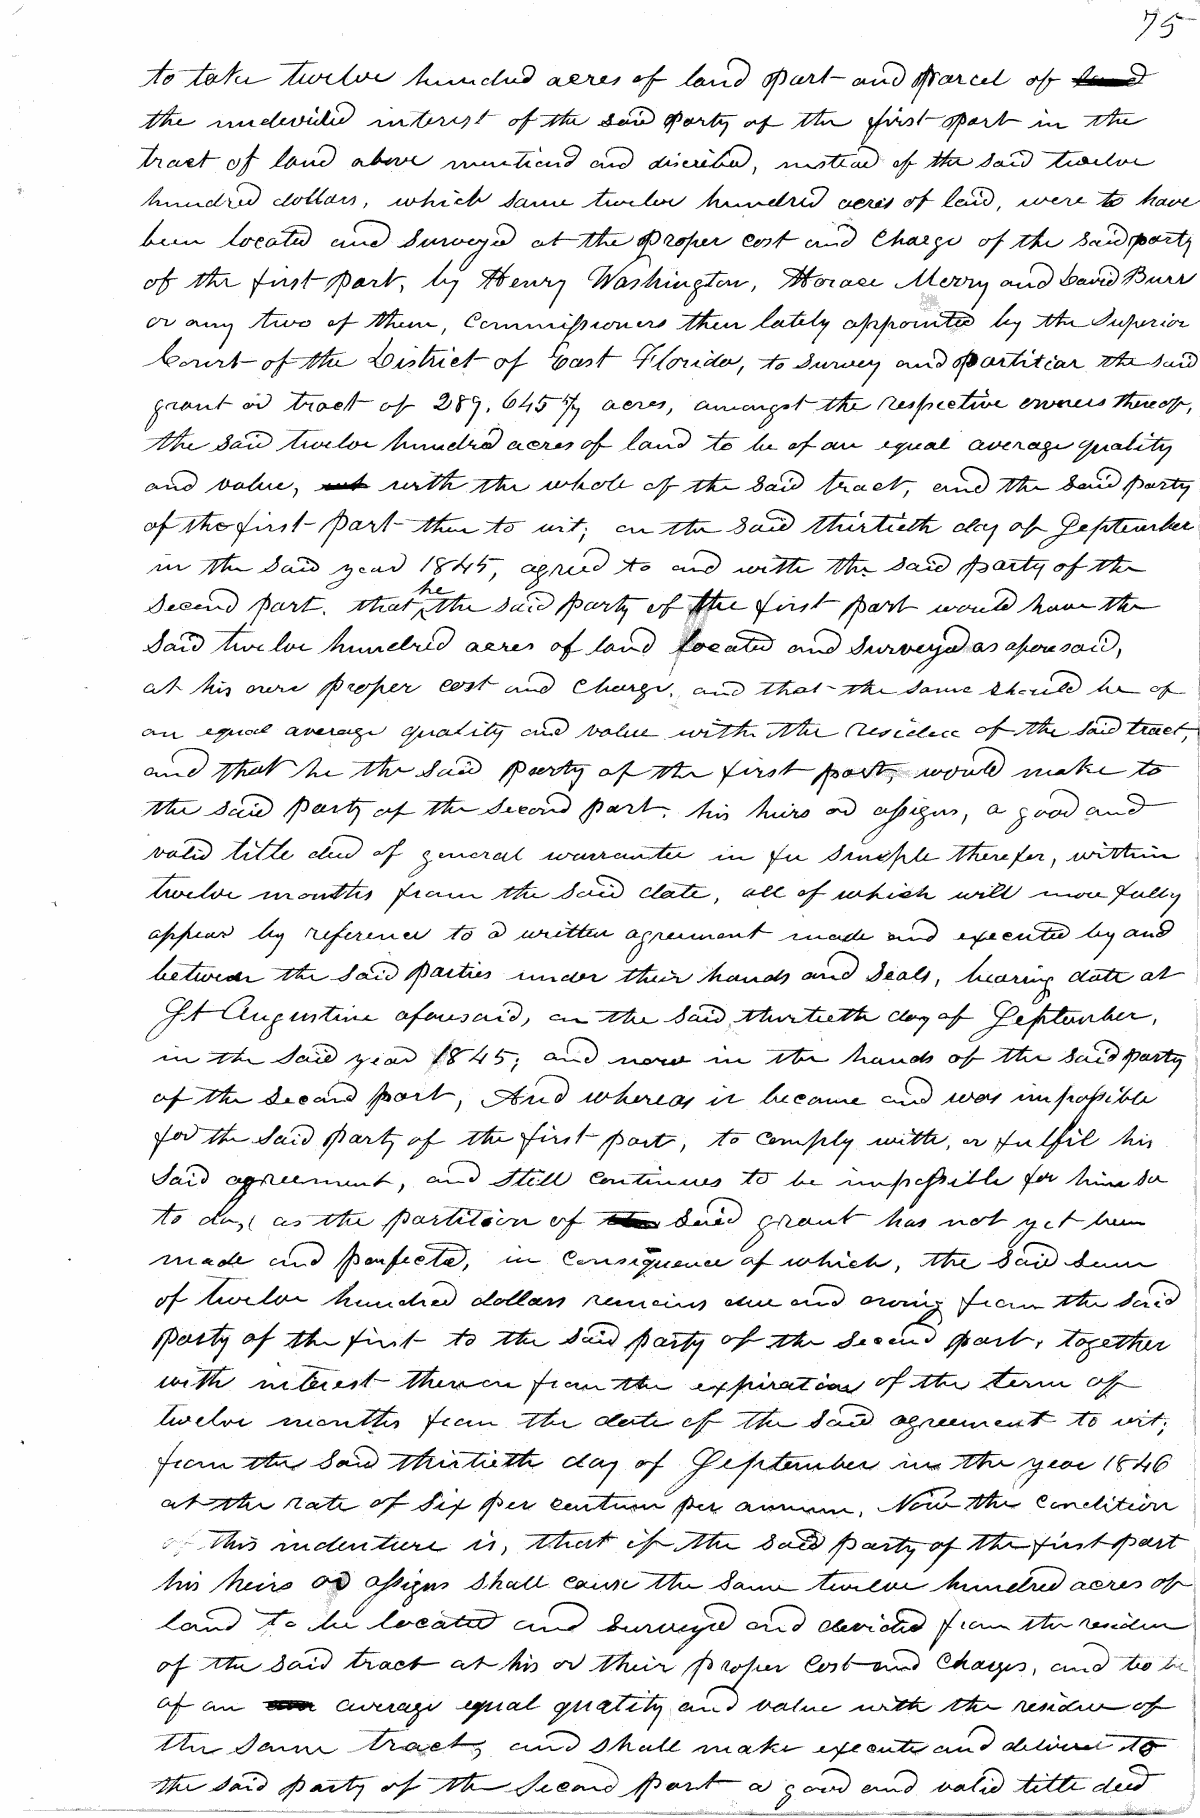 75
to take twelve hundred acres of land part and parcel of land
the undevided interest of the said party of the first part in the
tract of land above mentiond and discribed, instead of the said twelve
hundred dollars, which same twelve hundred acres of laid, were to have
been located and surveyed at the proper cost and charge of the said party
of the first part, by Henry Washington, Horace Merry and David Burr
or any two of them, Commissioners then lately appointed by the Superior
Court of the District of East Florida, to survey and partition the said
grant or tract of 289,645 5/7 acres, amongst the respective owners thereof,
the said twelve hundred acres of land to be of an equal average quality
and value, with the whole of the said tract, and the said party
of the first part then to wit; on the said thirtieth day of September
in the said year 1845, agreed to and with the said party of the
Second part. that he the said party of the first part would have the
said twelve hundred acres of land located and surveyed as aforesaid,
at his own proper cost and charge. and that the same should be of
an equal average quality and value with the residue of the said tract,
and that he the said party of the first part, would make to
the said party of the second part. his heirs or assigns, a good and
valid title deed of general warrantee in fee simple therefor, within
twelve months from the said date, all of which will more fully
appear by reference to a written agreement made and executed by and
between the said parties under their hands and seals, bearing date at
St Augustine aforesaid, on the said thirtieth day of September,
in the said year 1845; and now in the hands of the said party
of the second part, And whereas it became and was impossible
for the said party of the first part, to comply with, or fulfil his
said agreement, and still continues to be impossible for him so
to do, as the partition of the said grant has not yet been
made and perfected, in consequence of which, the said sum
of twelve hundred dollars remains due and owing from the said
party of the first to the said party of the second part, together
with interest thereon from the expiration of the term of
twelve months from the date of the said agreement to wit;
from the said thirtieth day of September in the year 1846
at the rate of six per centum per annum. Now the condition
of this indenture is, that if the said party of the first part
his heirs or assigns shall cause the same twelve hundred acres of
land to be located and surveyed and devided from the residue
of the said tract at his or their proper cost and charges, and to be
of an average equal quality and value with the residue of
the same tract, and shall make execute and deliver to
the said party of the second part a good and valid title deed